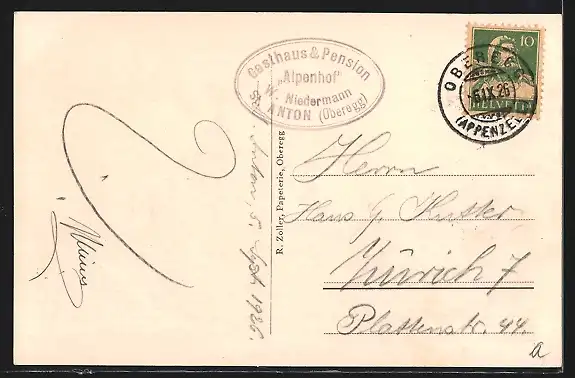 Gasthaus & Pension
„Alpenhof“
W. Niedermann
St. ANTON (Oberegg)
10
HELVETIA
OBEREGG
5.IX.26
(APPENZELL)
St. Anton, 5. Sept. 1926.
R. Zoller, Papeterie, Oberegg
Herrn
Hans J. Kutter
Zürich 7
Plattenstr. 44.
a